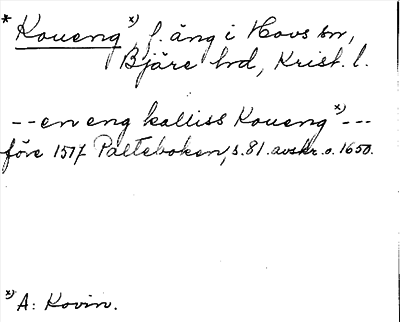 * Koueng x) f. äng i Hovs sn,
Bjäre hd, Krist. l.
-- en eng kalliss Koueng x) ---
före 1517 Palteboken, s. 81. avskr. o. 1650.
x) A: Kovin.